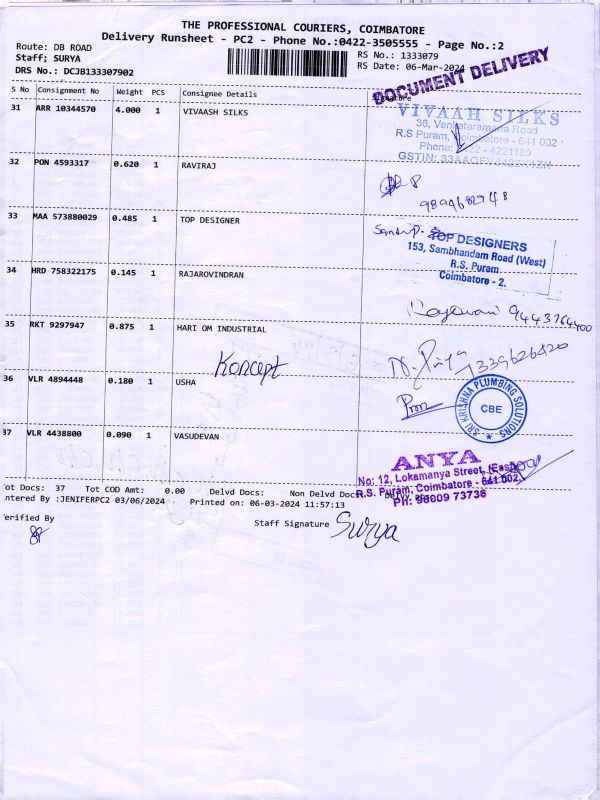 THE PROFESSIONAL COURIERS, COIMBATORE
Delivery Runsheet - PC2 - Phone No.:0422-3505555 - Page No.:2
Route: DB ROAD
Staff; SURYA
DRS No.: DCJB133307902
RS No.: 1333079
RS Date: 06-Mar-2024
DOCUMENT DELIVERY
S No Consignment No Weight PCS Consignee Details
31 ARR 10344570 4.000 1 VIVAASH SILKS
VIVAAH SILKS
36, Venkataramana Road
R.S Puram, Coimbatore - 641 002
Phone: 4221180
GSTIN:
32 PON 4593317 0.620 1 RAVIRAJ
33 MAA 573880029 0.485 1 TOP DESIGNER
TOP DESIGNERS
153, Sambhandam Road (West)
R.S. Puram
Coimbatore - 2.
34 HRD 758322175 0.145 1 RAJAROVINDRAN
9443764400
35 RKT 9297947 0.875 1 HARI OM INDUSTRIAL
Koncept
7339626420
36 VLR 4894448 0.180 1 USHA
SRI KRISHNA PLUMBING SOLUTIONS
CBE
37 VLR 4438800 0.090 1 VASUDEVAN
ANYA
No: 12, Lokamanya Street, (East)
R.S. Puram, Coimbatore - 641 002.
Ph: 96009 73736
ot Docs: 37 Tot COD Amt: 0.00 Delvd Docs: Non Delvd Docs:
ntered By :JENIFERPC2 03/06/2024 Printed on: 06-03-2024 11:57:13
erified By
Staff Signature Surya